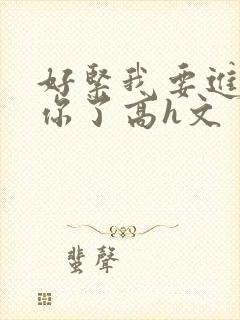 好緊我要進
你了高h文
蛩聲